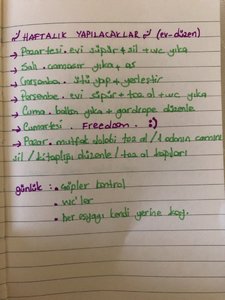 HAFTALIK YAPILACAKLAR (ev-düzen)
→ Pazartesi. evi süpür + sil + wc yıka
→ Salı. çamaşır yıka + as
→ Çarşamba. ütü yap + yerleştir
→ Perşembe. evi süpür + toz al + wc yıka
→ Cuma. balkon yıka + gardrope düzenle
→ Cumartesi. Freedom. :)
→ Pazar. mutfak dolabı toz al / 1 odanın camını
sil / kitaplığı düzenle / toz al kapıları
günlük : • Çöpler kontrol
• wc'ler
• her eşyayı kendi yerine koy.